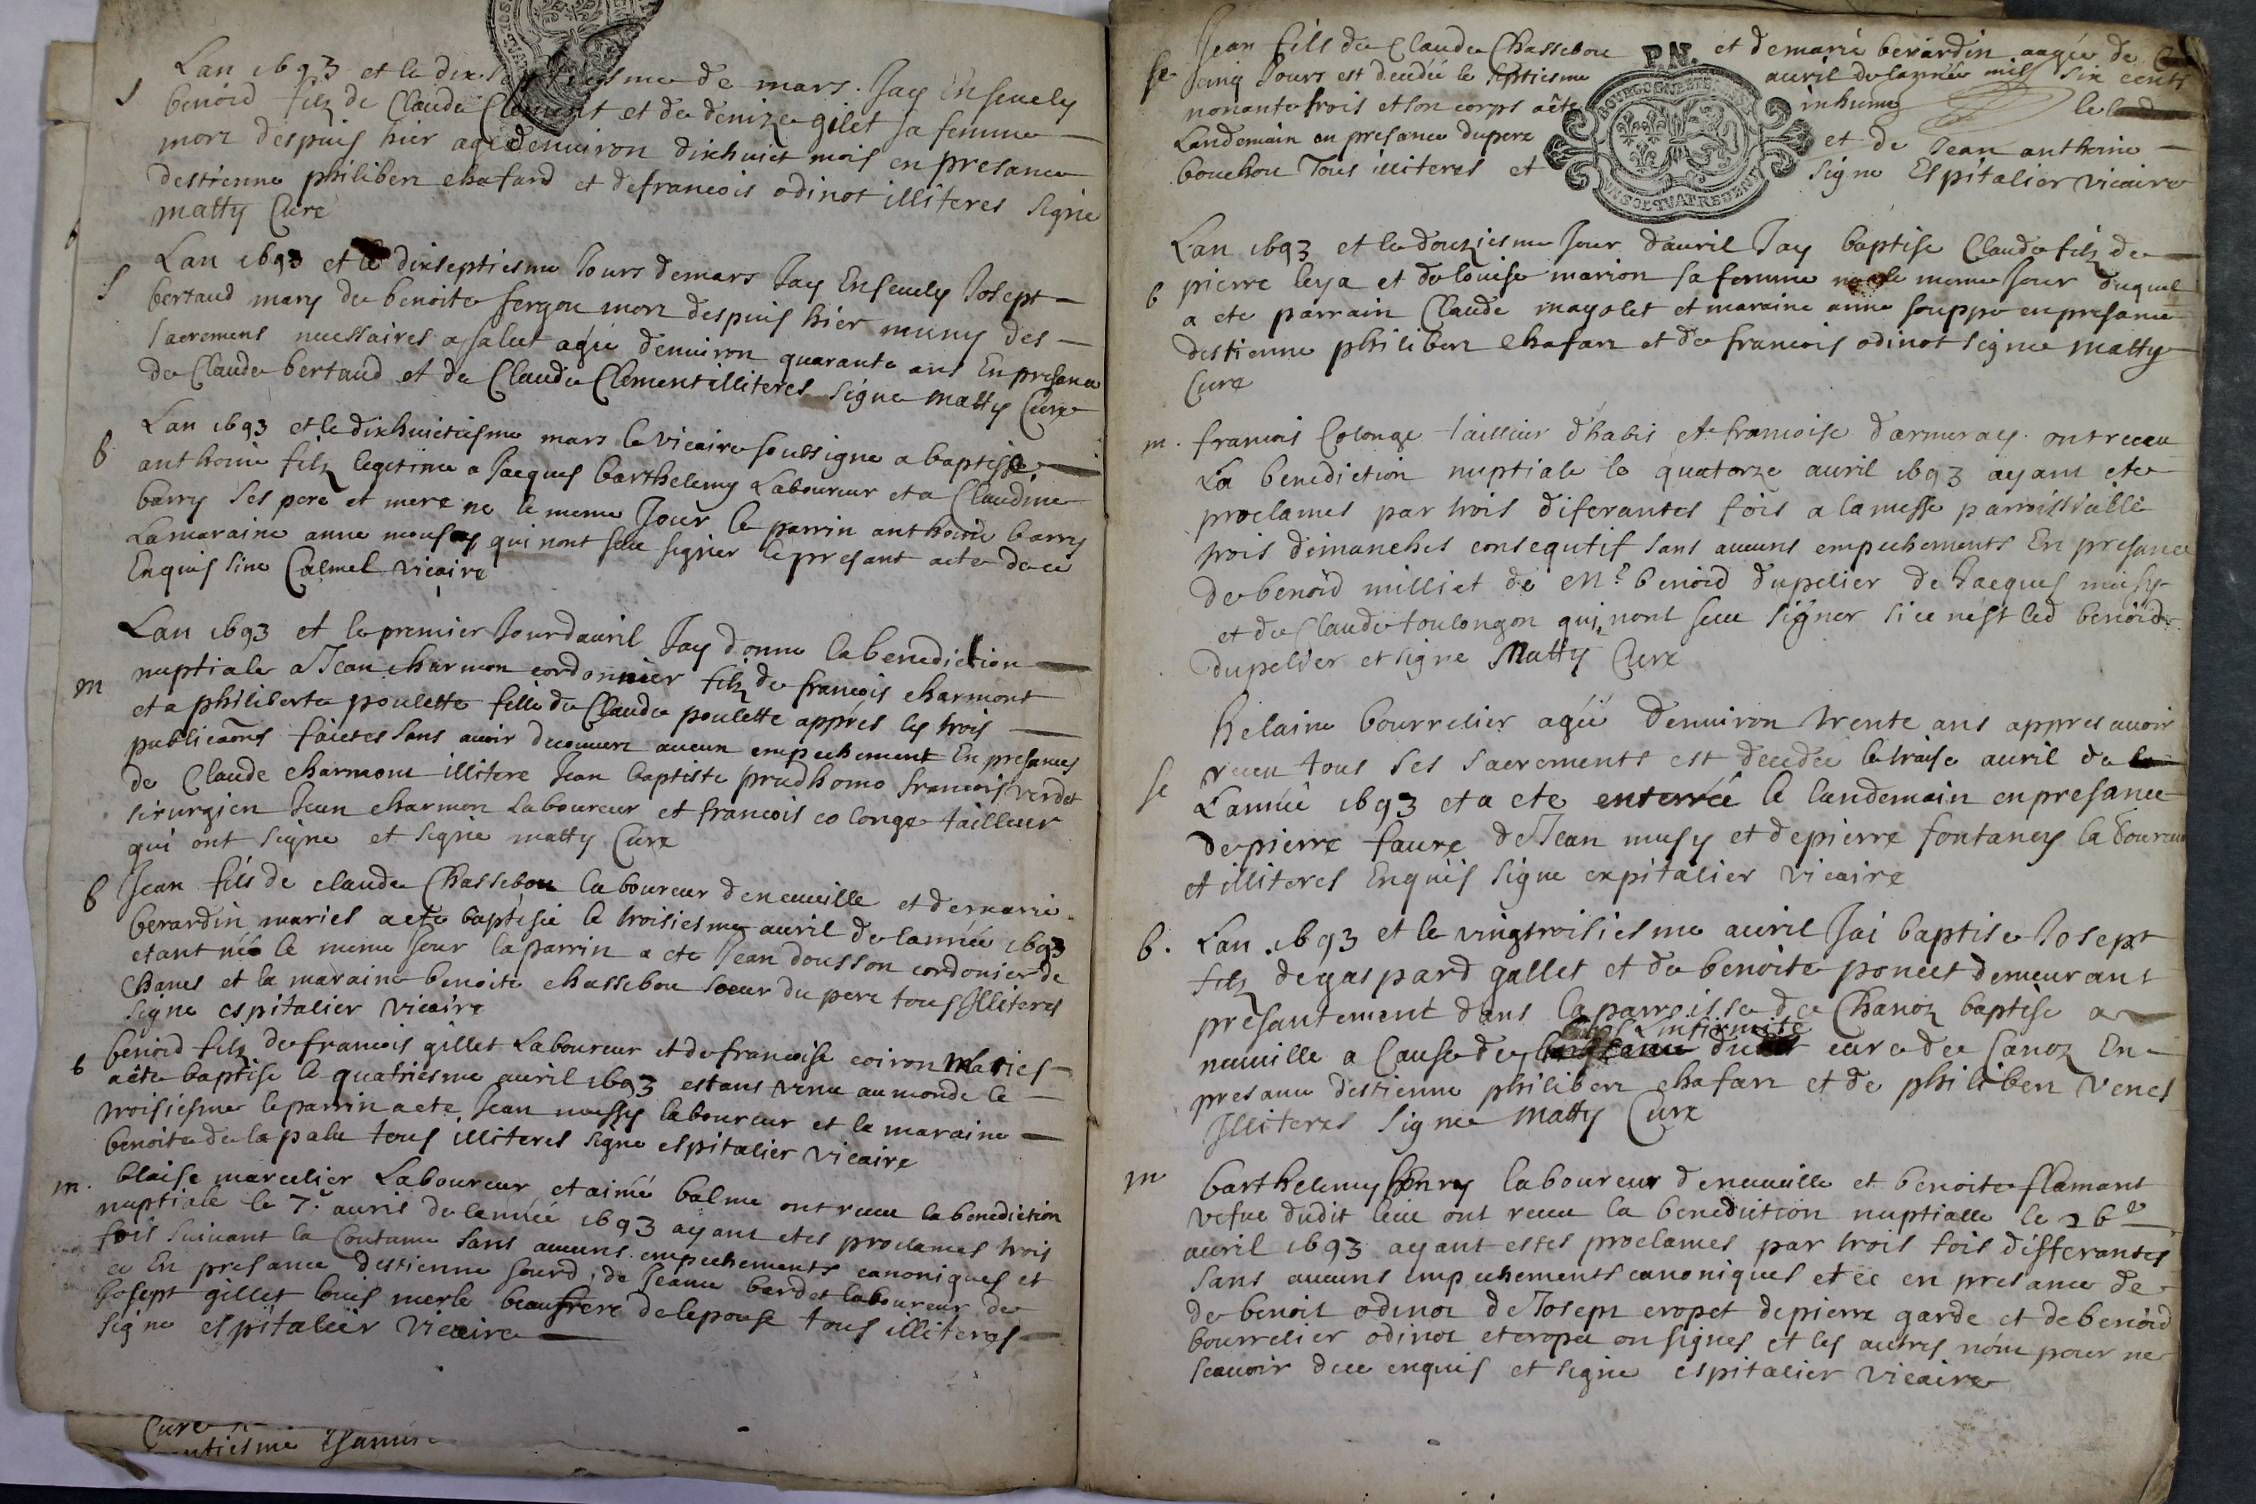 s Lan 1693 et le dix septiesme de mars Jay Enseuely
benoid filz de Claude Clement et de denize gilet sa femme
mort despuis hier agé denuiron dixhuict mois en presance
destienne philibert chafard et defrancois odinot illiteres signé
matty Curé
s Lan 1693 et le dixseptiesme Jours demars Jay Enseuely Josept
bertaud mary de benoite fergou mort despuis hier muny des
sacremens necessaires a salut agé denuiron quarante ans En presance
de Claude bertaud et de Claude Clement illiteres signé matty Curé
b Lan 1693 et le dixhuictiesme mars le vicaire soulsigne a baptisse
anthoine filz legetime a Jacques barthelemy Laboureur et a Claudine
barry ses pere et mere ne le meme Jour le parrin anthoine barry
La maraine anne qui nont seu signer le present acte de ce
Enquis sine Calmel vicaire
m Lan 1693 et le premier Jourdauril Jay donne la benediction
nuptiale a Jean charmon cordonnier filz de francois charmont
et a philiberte poulette fille de Claude poulette apprés les trois
publicaōns faictes sans auoir decouuert aucun empechement En presances
de Claude charmont illitere Jean baptiste prudhomo francois verdet
sirurgien Jean charmon laboureur et francois colonge tailleur
qui ont signe et signé matty Curé
b Jean fils de claude Chassebou laboureur deneuuille et demarie
berardin mariés a eté baptisé le troisiesme auril de lannéé 1693
etant néé le meme jour la parrin a ete Jean dousson cordonier de
Chanes et la maraine benoite chassebou soeur du pere tous Illiteres
signe espitalier vicaire
b benoid filz de francois gillet Laboureur et de francoise coiron mariés
a été baptise le quatriesme auril 1693 estant venu au monde le
troisiesme le parrin a ete Jean mussy laboureur et la maraine
benoite de la palu tous illiteres signe espitalier vicaire
m. blaise marcelier Laboureur et aiméé balme ont receu la benediction
nuptiale le 7e auris de lannéé 1693 ayant etes proclames trois
fois suiuant la Coutume sans aucuns empechements canoniques et
ce En presance destienne gourd, de Jeanne bardet laboureur de
Josept gillet louis merle beaufrere de lepouse tous illiteres
signe espitalier vicaire
Curé
Januie
se Jean fils de Claude Chassebou et demarié berardin aagéé de
cinq Jours est decedéé le septiesme auril de lannéé mil six cents
nonante trois et son corps a été inhumé le
Landemain en presance dupere et de Jean anthoine
bouchou Tous illiteres et signe Espitalier vicaire
P.N.
BOURGOGNE BRESSE
Lan 1693 et le douziesme Jour dauril Jay baptise Claude filz de
b pierre leya et de louise marion sa femme né le meme Jour duquel
a ete parrain Claude mayolet et maraine anne souppe en presance
destienne philibert chafart et de francois odinot signé matty
Curé
m. francois Colonge tailleur dhabis et francoise darmeray ont receu
La benediction nuptiale le quatorze auril 1693 ayant ete
proclames par trois diferantes fois a la messe parroissialle
trois dimanches consequtif sans aucuns empechements En presance
de benoid milliet de Mr. benoid dupelier de Jacques musy
et de Claude toulongon qui nont seu signer si ce nest led benoid
dupelier et signe Matty Curé
helaine bourrelier agéé denuiron trente ans appres auoir
se receu tous ses sacrements est decedéé le traise auril de
Lannéé 1693 et a ete enterréé le landemain en presance
de pierre faure de Jean musy et de pierre fontaney laboureur
et illiteres Enquis signe espitalier vicaire
b. Lan 1693 et le vingtroisiesme auril Jai baptise Josept
filz degaspard gallet et de benoite poncet demeurant
presantement dans la parroisse de Chanoz baptise a
neuuille a Cause de linfirmité du curé de Canoz En
presance destienne philibert chafart et de philibert venes
Illiteres signe matty Curé
m barthelemy henry laboureur deneuuille et benoite flamant
vefue dudit lieu ont receu la benediction nuptialle le 26e
auril 1693 ayant estes proclames par trois fois differantes
sans aucuns empechements canoniques et ce en presance de
de benoit odinot de Josept cropet depierre garde et de benoid
bourrelier odinot et cropet on signes et les autres non pour ne
scauoir de ce enquis et signe espitalier vicaire